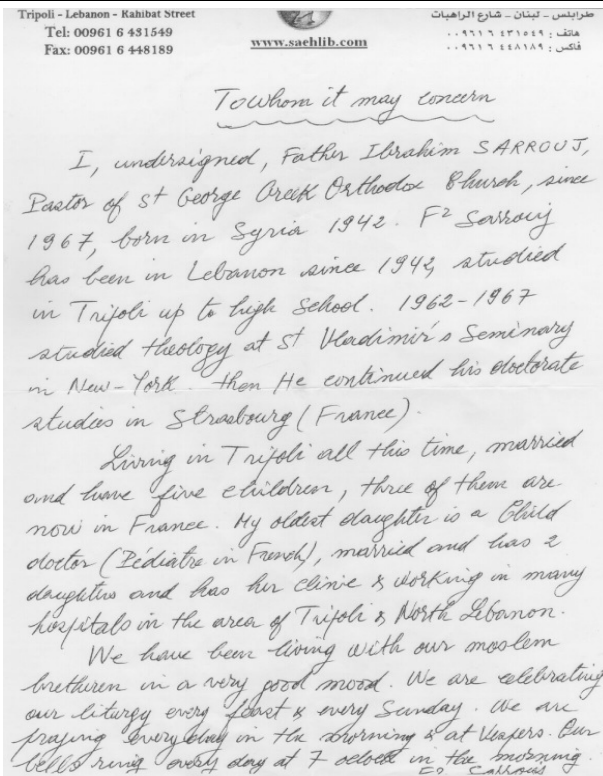 Tripoli - Lebanon - Rahibat Street
Tel: 00961 6 431549
Fax: 00961 6 448189
www.saehlib.com
طرابلس - لبنان - شارع الراهبات
هاتف : ٤٣١٥٤٩ ٦ ٠٠٩٦١
فاكس : ٤٤٨١٨٩ ٦ ٠٠٩٦١
To whom it may concern
I, undersigned, Father Ibrahim SARROUJ,
Pastor of St George Greek Orthodox Church, since
1967, born in Syria 1942. Fr Sarrouj
has been in Lebanon since 1942, studied
in Tripoli up to high school. 1962-1967
studied theology at St Vladimir's Seminary
in New-York. then He continued his doctorate
studies in Strasbourg (France).
Living in Tripoli all this time, married
and have five children, three of them are
now in France. My oldest daughter is a Child
doctor (Pédiatre in French), married and has 2
daughters and has her clinic & working in many
hospitals in the area of Tripoli & North Lebanon.
We have been living with our moslem
brethren in a very good mood. We are celebrating
our liturgy every feast & every Sunday. We are
praying everyday in the morning & at Vespers. Our
bells ring every day at 7 oclock in the morning.